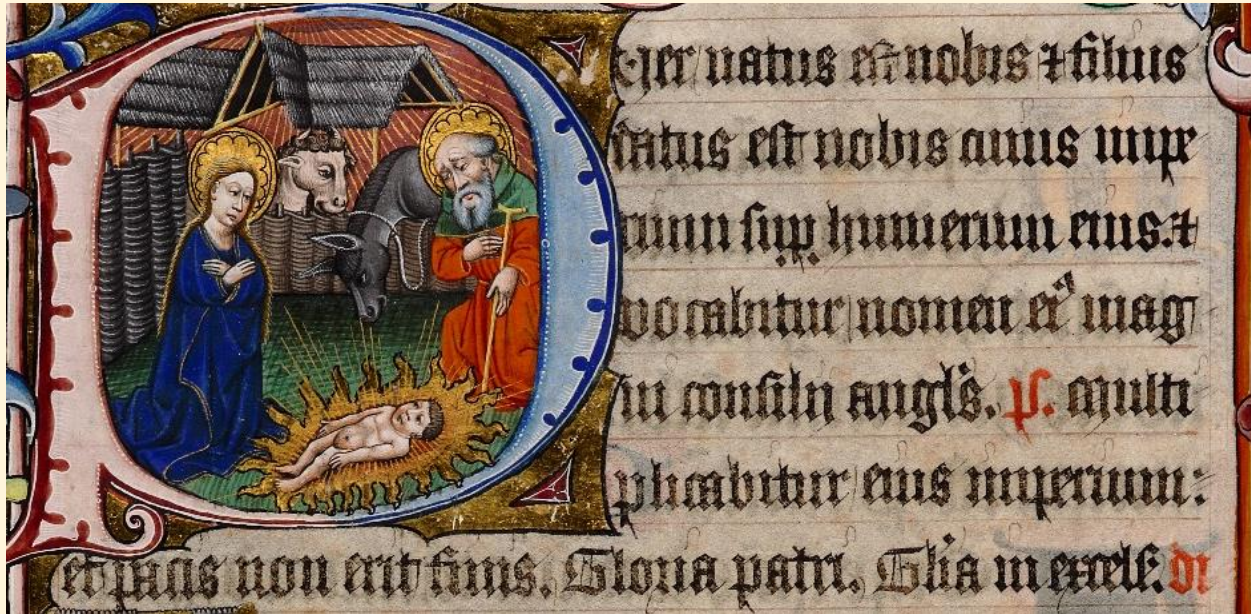 Puer natus est nobis ⁊ filius
datus est nobis cuius impe
rium sup humerum eius. ⁊
vocabitur nomen ei᾽ mag
ni consilij angl᾽s. ps. Multi
plicabitur eius imperium:
et pacis non erit finis. Gloria patri. Gl᾽ia in excels. or